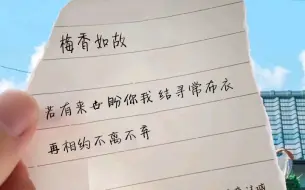 梅香如故
若有来世盼你我结寻常布衣
再相约不离不弃